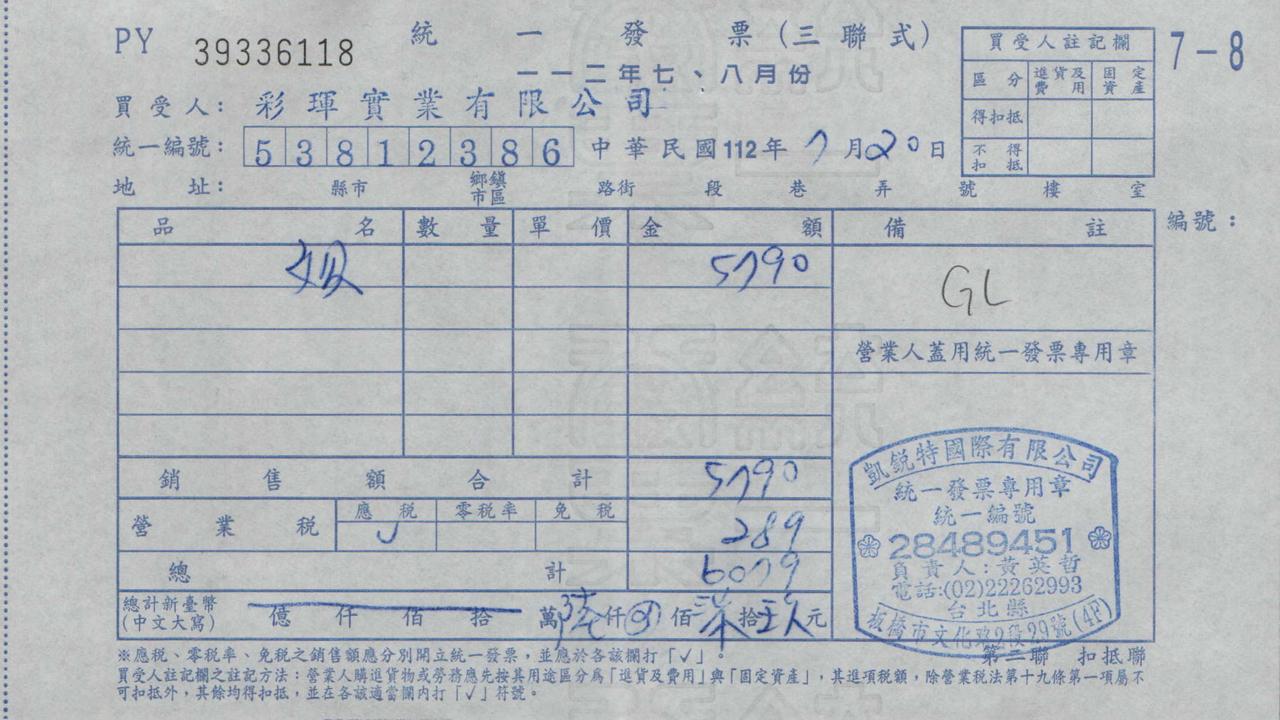 PY 39336118 統一發票(三聯式)
一一二年七、八月份
7-8
買受人註記欄
區分 進貨及費用 固定資產
得扣抵
不得扣抵
買受人: 彩琿實業有限公司
統一編號: 53812386 中華民國112年 7月20日
地址: 縣市 鄉鎮市區 路街 段 巷 弄 號 樓 室
品名 數量 單價 金額 備註 編號:
5790
GL
營業人蓋用統一發票專用章
銷售額合計 5790
營業稅 應稅 零稅率 免稅 289
總計 6079
總計新臺幣(中文大寫) 億 仟 佰 拾 萬 陸仟 佰 柒拾玖元
凱銳特國際有限公司
統一發票專用章
統一編號
28489451
負責人:黃英哲
電話:(02)22262993
台北縣
板橋市文化路2段29號(4F)
第二聯 扣抵聯
※應稅、零稅率、免稅之銷售額應分別開立統一發票,並應於各該欄打「✓」。
買受人註記欄之註記方法:營業人購進貨物或勞務應先按其用途區分為「進貨及費用」與「固定資產」,其進項稅額,除營業稅法第十九條第一項屬不
可扣抵外,其餘均得扣抵,並在各該適當欄內打「✓」符號。